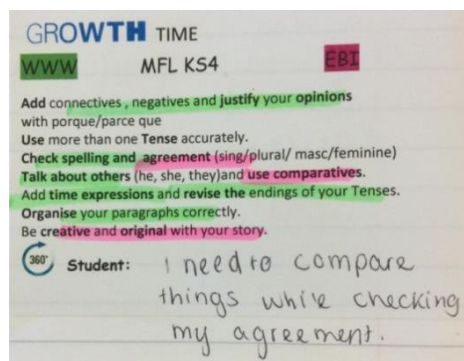 GROWTH TIME
WWW MFL KS4 EBI
Add connectives , negatives and justify your opinions
with porque/parce que
Use more than one Tense accurately.
Check spelling and agreement (sing/plural/ masc/feminine)
Talk about others (he, she, they)and use comparatives.
Add time expressions and revise the endings of your Tenses.
Organise your paragraphs correctly.
Be creative and original with your story.
360° Student: I need to compare
things while checking
my agreement.